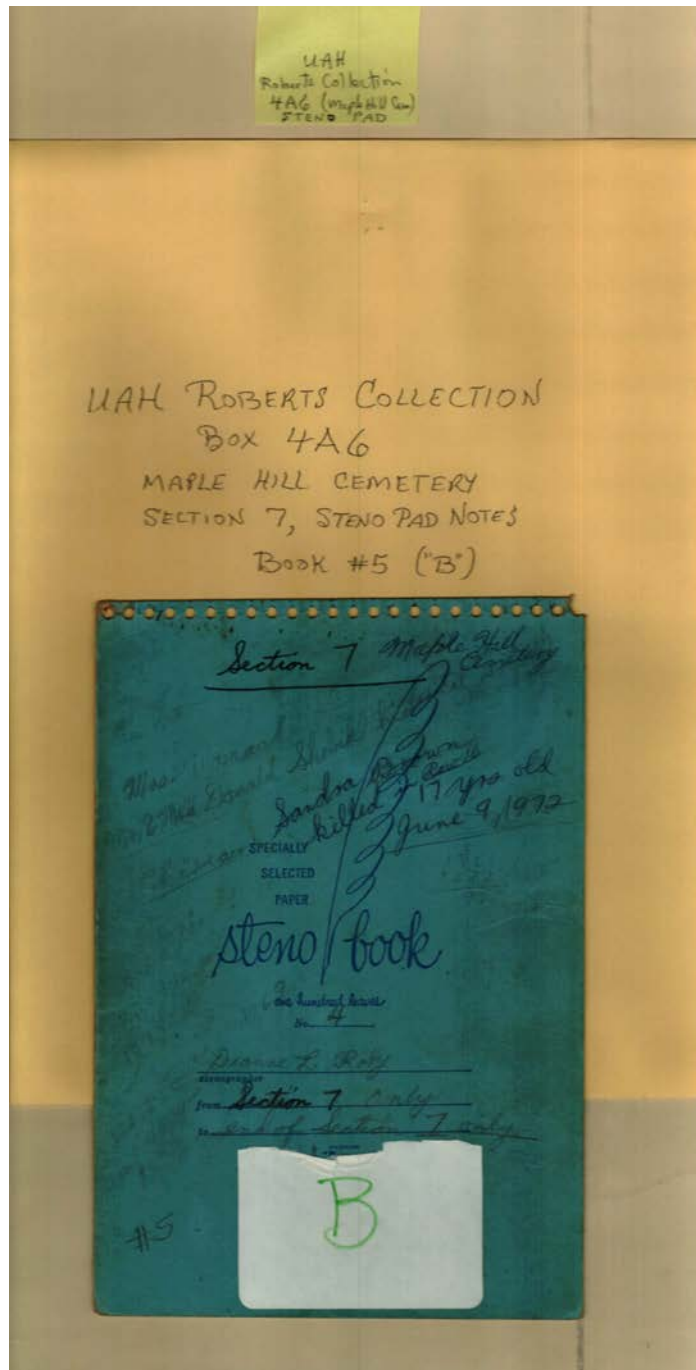 UAH
Roberts Collection
4A6 (Maple Hill Cem)
STENO PAD
UAH ROBERTS COLLECTION
BOX 4A6
MAPLE HILL CEMETERY
SECTION 7, STENO PAD NOTES
BOOK #5 ("B")
Section 7
Maple Hill
Cemetery
Mr. & Mrs. Donald
Sandra Brown
killed 17 yrs old
June 9, 1972
SPECIALLY
SELECTED
PAPER
steno book
one hundred leaves
No. 4
Deanne L.
stenographer
from Section 7 only
to end of section 7 only
#5
B